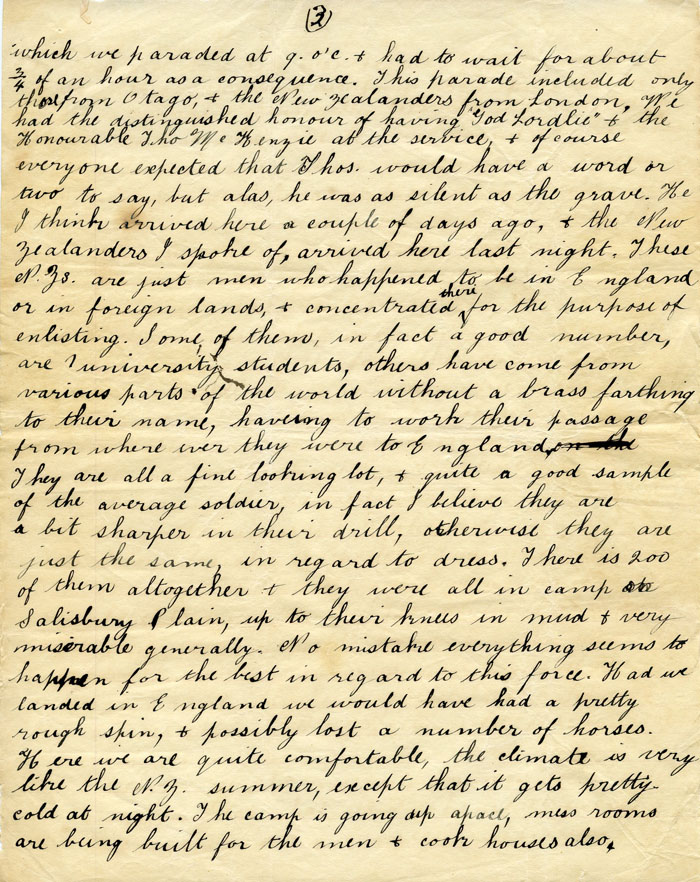 (3)
which we paraded at 9.o'c. & had to wait for about
3/4 of an hour as a consequence. This parade included only
those from Otago, & the New Zealanders from London. We
had the distinguished honour of having "Tod Lordlie" & the
Honourable Tho Mc Kenzie at the service, & of course
everyone expected that Thos. would have a word or
two to say, but alas, he was as silent as the grave. He
I think arrived here a couple of days ago, & the New
Zealanders I spoke of, arrived here last night. These
N.Zs. are just men who happened to be in England
or in foreign lands, & concentrated there for the purpose of
enlisting. Some of them, in fact a good number,
are university students, others have come from
various parts of the world without a brass farthing
to their name, haveing to work their passage
from where ever they were to England,
They are all a fine looking lot, & quite a good sample
of the average soldier, in fact I believe they are
a bit sharper in their drill, otherwise they are
just the same, in regard to dress. There is 200
of them altogether & they were all in camp
Salisbury Plain, up to their knees in mud & very
miserable generally. No mistake everything seems to
happen for the best in regard to this force. Had we
landed in England we would have had a pretty
rough spin, & possibly lost a number of horses.
Here we are quite comfortable, the climate is very
like the N.Z. summer, except that it gets pretty
cold at night. The camp is going up apace, mess rooms
are being built for the men & cook houses also,